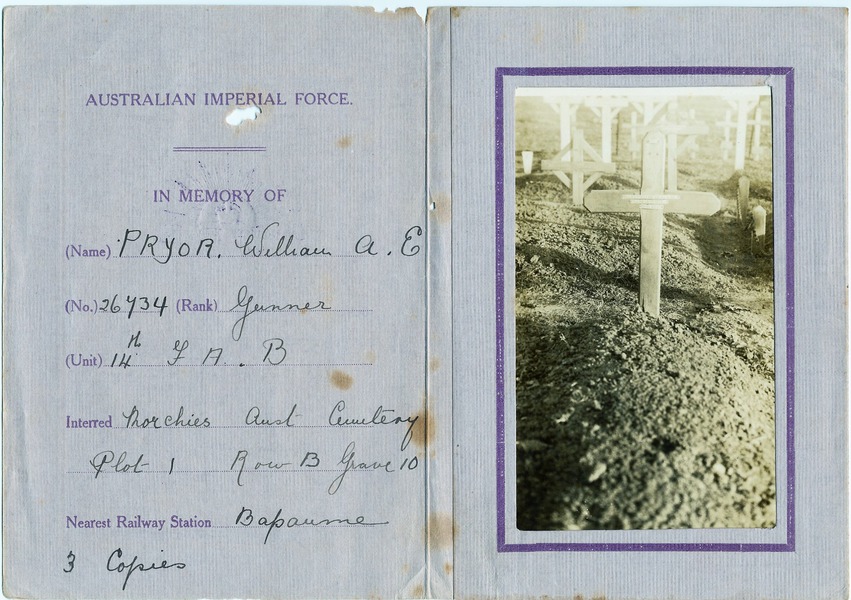 AUSTRALIAN IMPERIAL FORCE.
IN MEMORY OF
(Name) PRYOR. William A. E
(No.) 26734 (Rank) Gunner
(Unit) 14th F A. B
Interred Morchies Aust Cemetery
Plot 1 Row B Grave 10
Nearest Railway Station Bapaume
3 Copies